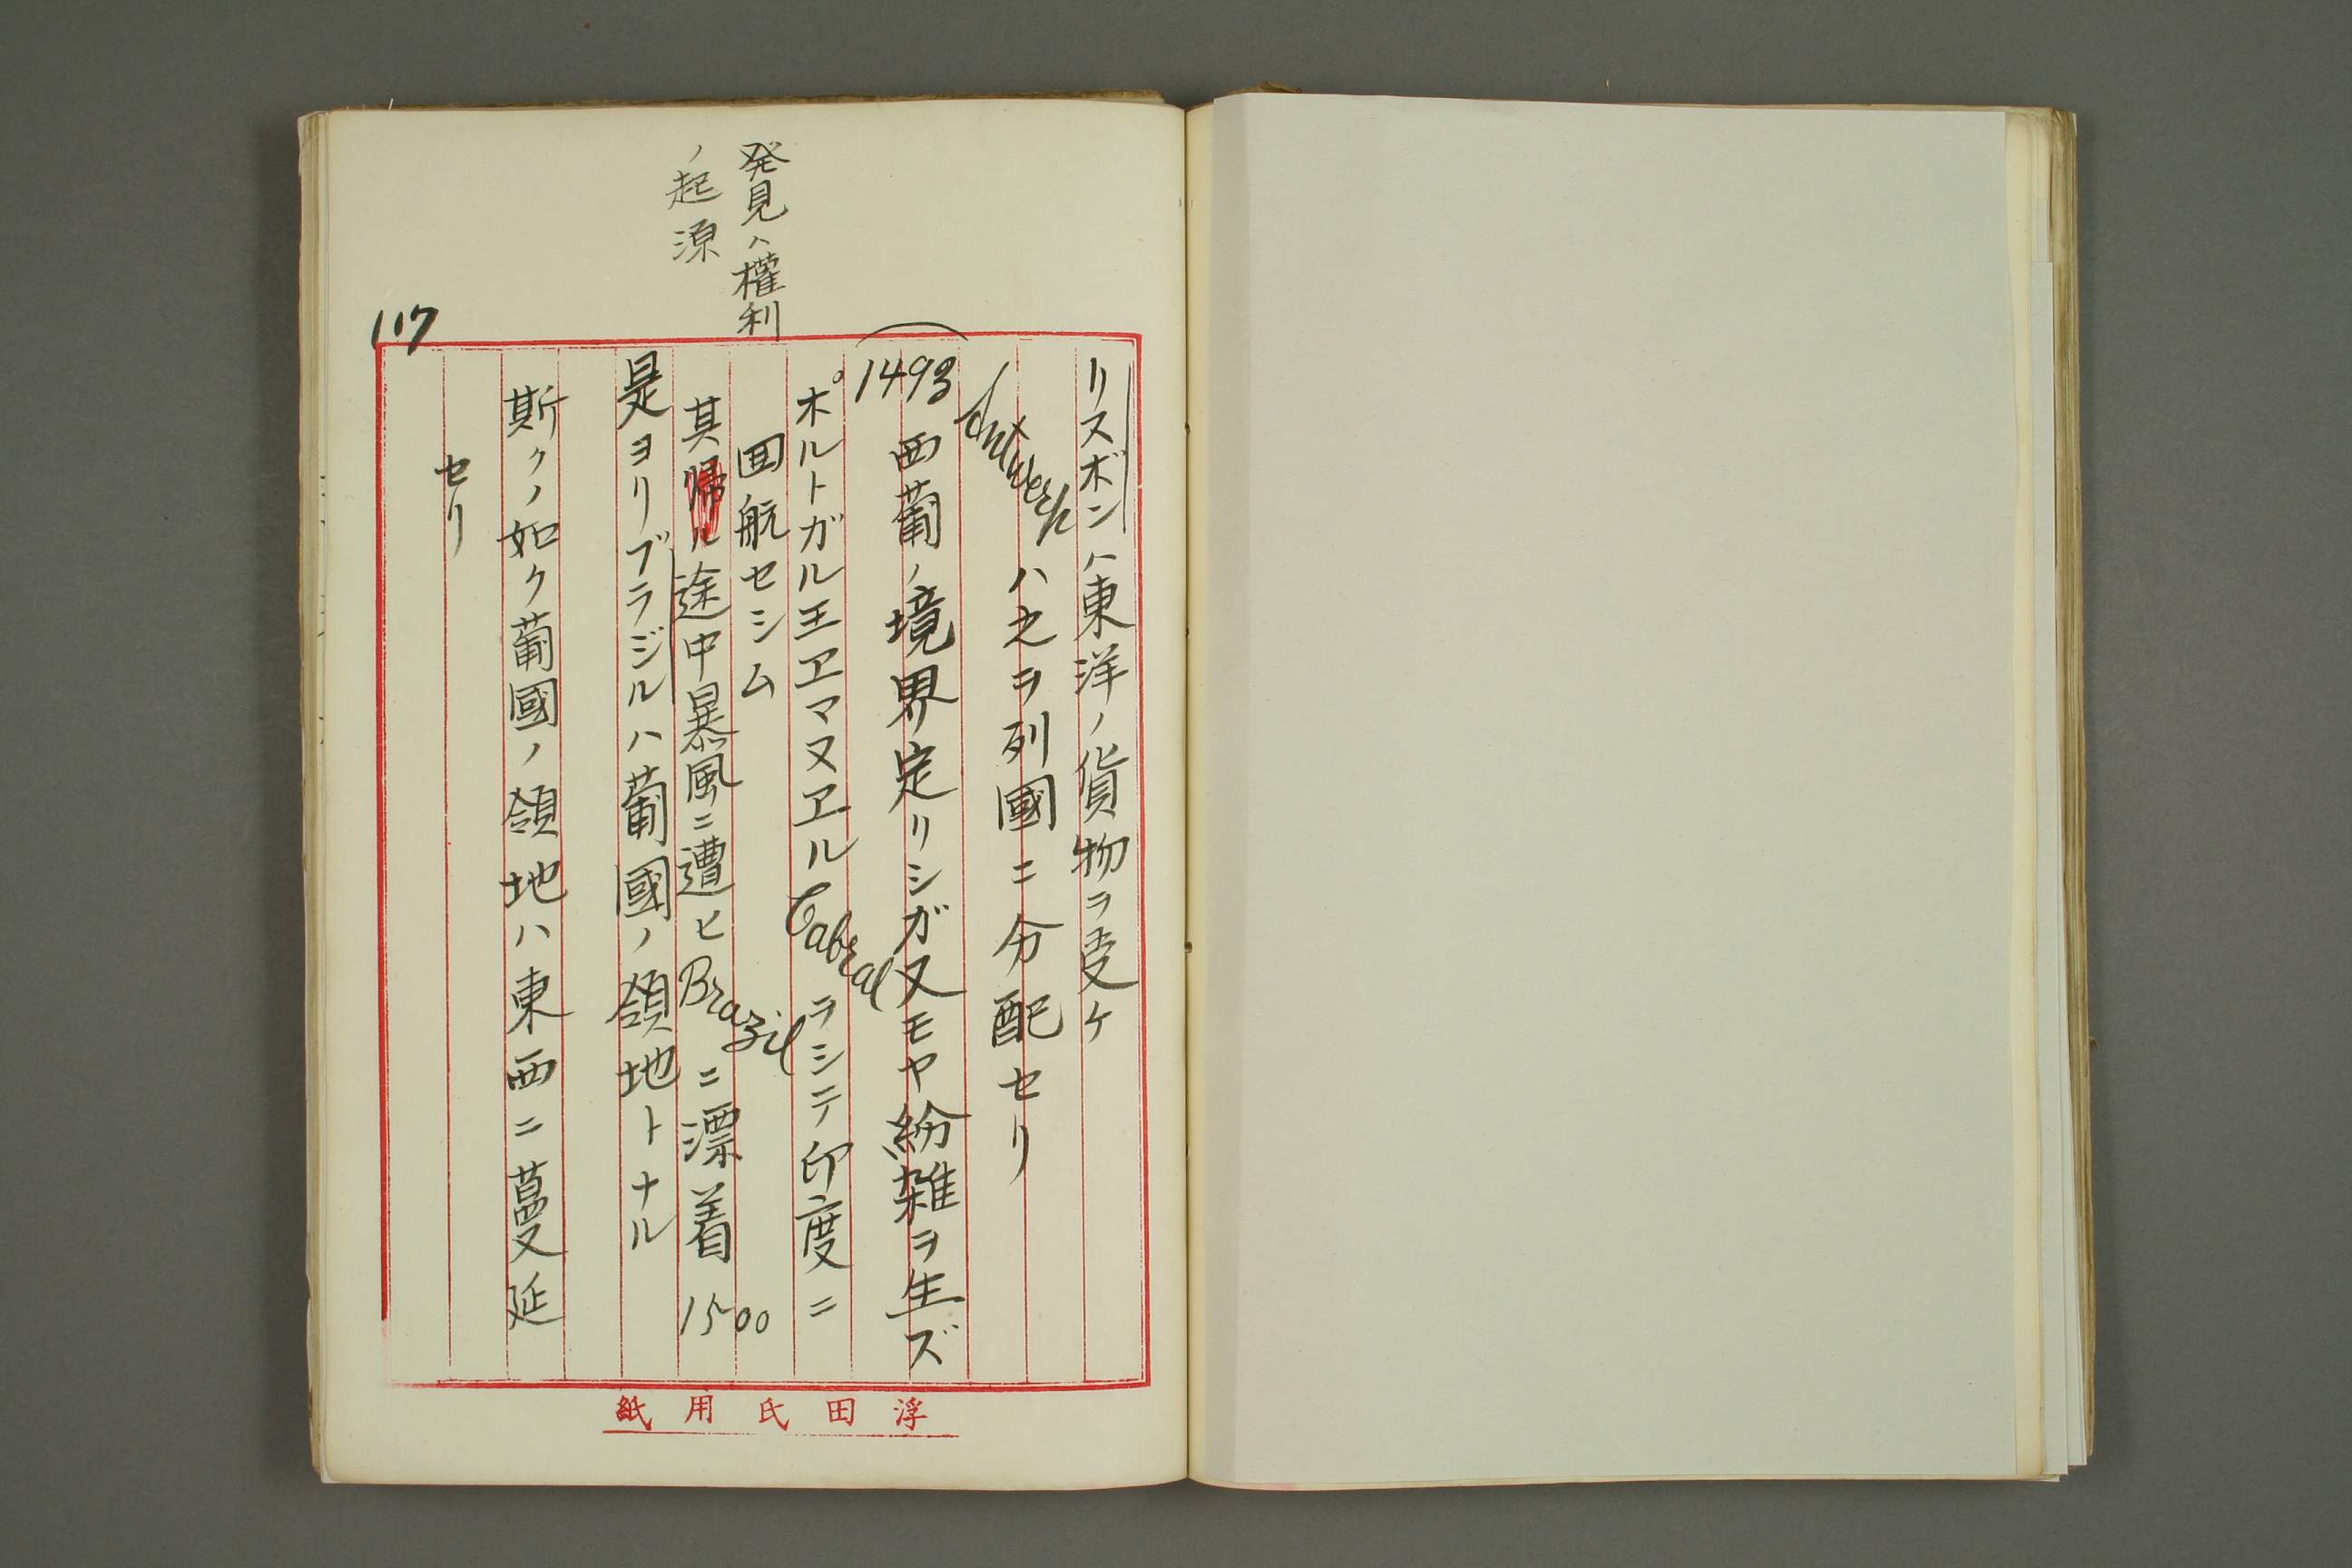 発見ハ權利
ノ起源
117
リスボンハ東洋ノ貨物ヲ受ケ
Antwerpハ之ヲ列國ニ分配セリ
1493 西葡ノ境界定リシガ又モヤ紛雑ヲ生ズ
ポルトガル王ヱマヌヱルCabralヲシテ印度ニ
囬航セシム
其帰ル途中暴風ニ遭ヒBrazilニ漂着 1500
是ヨリブラジルハ葡國ノ領地トナル
斯クノ如ク葡國ノ領地ハ東西ニ蔓延
セリ
浮田氏用紙